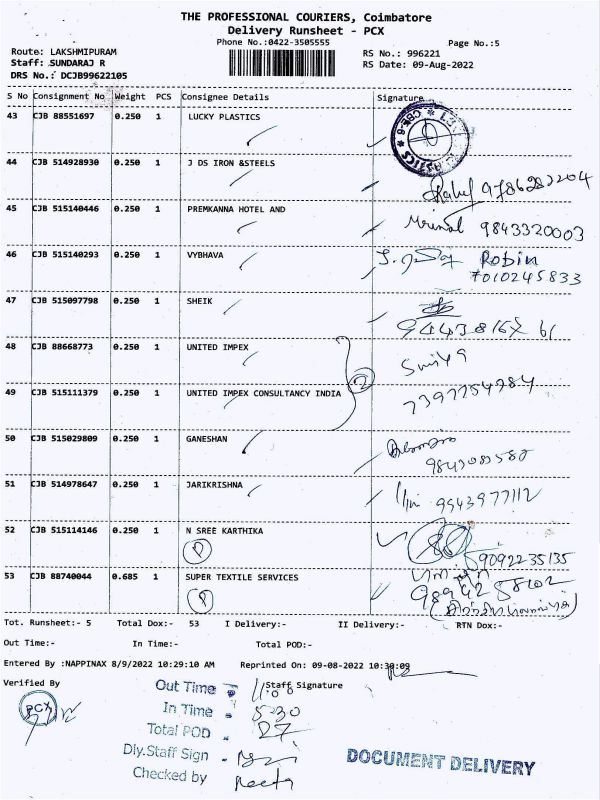 THE PROFESSIONAL COURIERS, Coimbatore
Delivery Runsheet - PCX
Phone No.:0422-3505555
Page No.:5
Route: LAKSHMIPURAM
RS No.: 996221
Staff: SUNDARAJ R
RS Date: 09-Aug-2022
DRS No.: DCJB99622105
S No Consignment No Weight PCS Consignee Details Signature
43 CJB 88551697 0.250 1 LUCKY PLASTICS
44 CJB 514928930 0.250 1 J DS IRON &STEELS 9786282204
45 CJB 515140446 0.250 1 PREMKANNA HOTEL AND Mrinal 9843320003
46 CJB 515140293 0.250 1 VYBHAVA Robin
7010245833
47 CJB 515097798 0.250 1 SHEIK
48 CJB 88668773 0.250 1 UNITED IMPEX
2
49 CJB 515111379 0.250 1 UNITED IMPEX CONSULTANCY INDIA 7397754784
50 CJB 515029809 0.250 1 GANESHAN
51 CJB 514978647 0.250 1 JARIKRISHNA 9943977112
52 CJB 515114146 0.250 1 N SREE KARTHIKA
P
9092235135
53 CJB 88740044 0.685 1 SUPER TEXTILE SERVICES
P
Tot. Runsheet:- 5 Total Dox:- 53 I Delivery:- II Delivery:- RTN Dox:-
Out Time:- In Time:- Total POD:-
Entered By :NAPPINAX 8/9/2022 10:29:10 AM Reprinted On: 09-08-2022 10:30:09
Verified By
Staff Signature
PCX
Out Time - 11:00
In Time - 5.30
Total POD - 27
Dly.Staff Sign -
Checked by Reeta
DOCUMENT DELIVERY